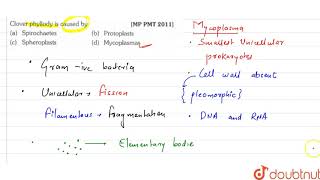 Clover phyllody is caused by [MP PMT 2011]
(a) Spirochaetes (b) Protoplasts
(c) Spheroplasts (d) Mycoplasmas
• Gram -ive bacteria
• Unicellular → fission
Filamentous → fragmentation
• → Elementary bodie
Mycoplasma
• Smallest Unicellular
prokaryotes
• Cell wall absent
{pleomorphic}
• DNA and RNA
doubtnut